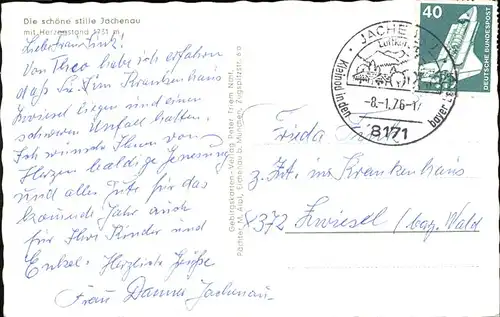 Die schöne stille Jachenau
mit Herzogstand 1731 m
Liebe Frau Link!
Von Theo habe ich erfahren
daß Sie im Krankenhaus
Zwiesel liegen und einen
schweren Unfall hatten.
Ich wünsche Ihnen von
Herzen baldige Genesung
und alles Gute für das
kommende Jahr auch
für Ihre Kinder und
Enkel. Herzliche Grüße
Frau Danner Jachenau
Gebirgskarten-Verlag Peter Triem Nchf.
Pächter M. Aloi, Eichenau b. München, Zugspitzstr.
JACHENAU
Luftkurort
Kleinod in den bayer.
-8.-1.76-17
8171
40
DEUTSCHE BUNDESPOST
Frieda Link
z. Zt. im Krankenhaus
8372 Zwiesel / bay. Wald